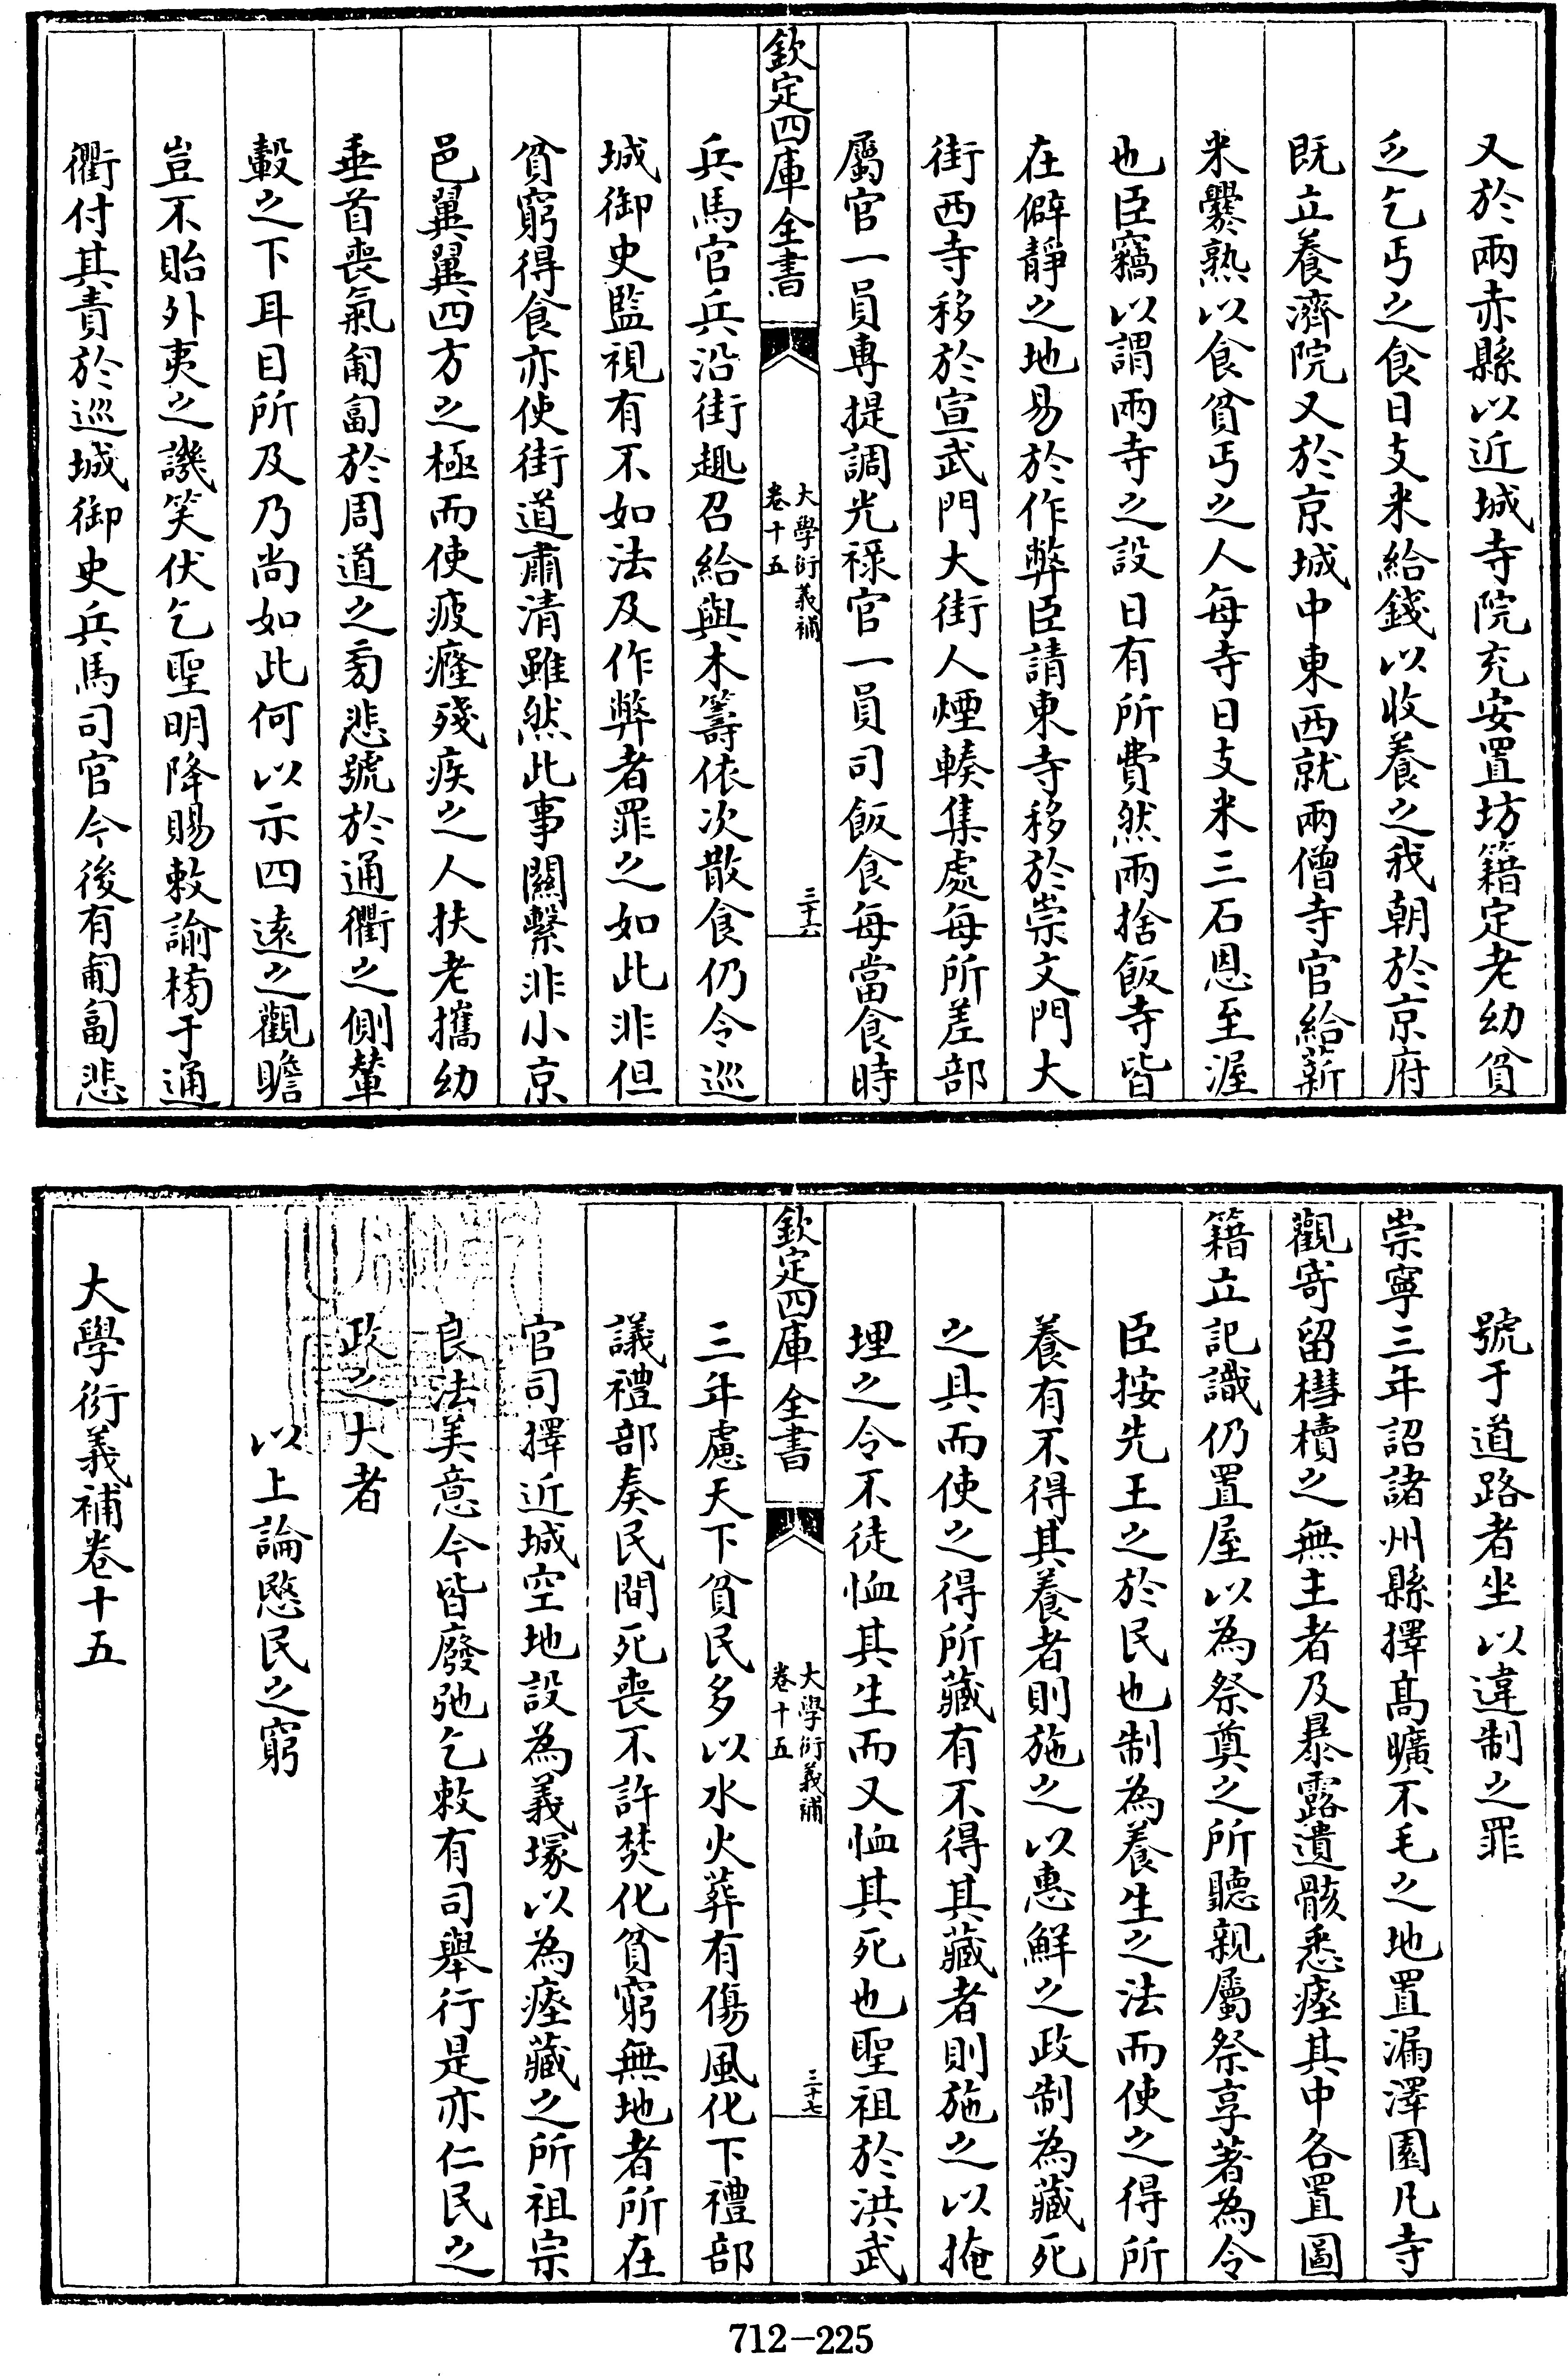 又於兩赤縣以近城寺院充安置坊籍定老幼貧
乏乞丐之食日支米給錢以收養之我朝於京府
既立養濟院又於京城中東西就兩僧寺官給薪
米爨熟以食貧丐之人每寺日支米三石恩至渥
也臣竊以謂兩寺之設日有所費然兩捨飯寺皆
在僻靜之地易於作弊臣請東寺移於崇文門大
街西寺移於宣武門大街人煙輳集處每所差部
屬官一員專提調光禄官一員司飯食每當食時
欽定四庫全書
大學衍義補
卷十五
三十六
兵馬官兵沿街趣召給與木籌依次散食仍令巡
城御史監視有不如法及作弊者罪之如此非但
貧窮得食亦使街道肅清雖然此事關繫非小京
邑翼翼四方之極而使疲癃殘疾之人扶老攜幼
垂首喪氣匍匐於周道之芻悲號於通衢之側輦
轂之下耳目所及乃尚如此何以示四遠之觀瞻
豈不貽外夷之譏笑伏乞聖明降賜敕諭榜于通
衢付其責於巡城御史兵馬司官今後有匍匐悲
號于道路者坐以違制之罪
崇寧三年詔諸州縣擇髙曠不毛之地置漏澤園凡寺
觀寄留槥櫝之無主者及暴露遺骸悉瘞其中各置圖
籍立記識仍置屋以為祭奠之所聽親屬祭享著為令
臣按先王之於民也制為養生之法而使之得所
養有不得其養者則施之以惠鮮之政制為藏死
之具而使之得所藏有不得其藏者則施之以掩
埋之令不徒恤其生而又恤其死也聖祖於洪武
欽定四庫全書
大學衍義補
卷十五
三十七
三年慮天下貧民多以水火葬有傷風化下禮部
議禮部奏民間死喪不許焚化貧窮無地者所在
官司擇近城空地設為義塚以為瘞藏之所祖宗
良法美意今皆廢弛乞敕有司舉行是亦仁民之
政之大者
以上論愍民之窮
大學衍義補卷十五
712-225